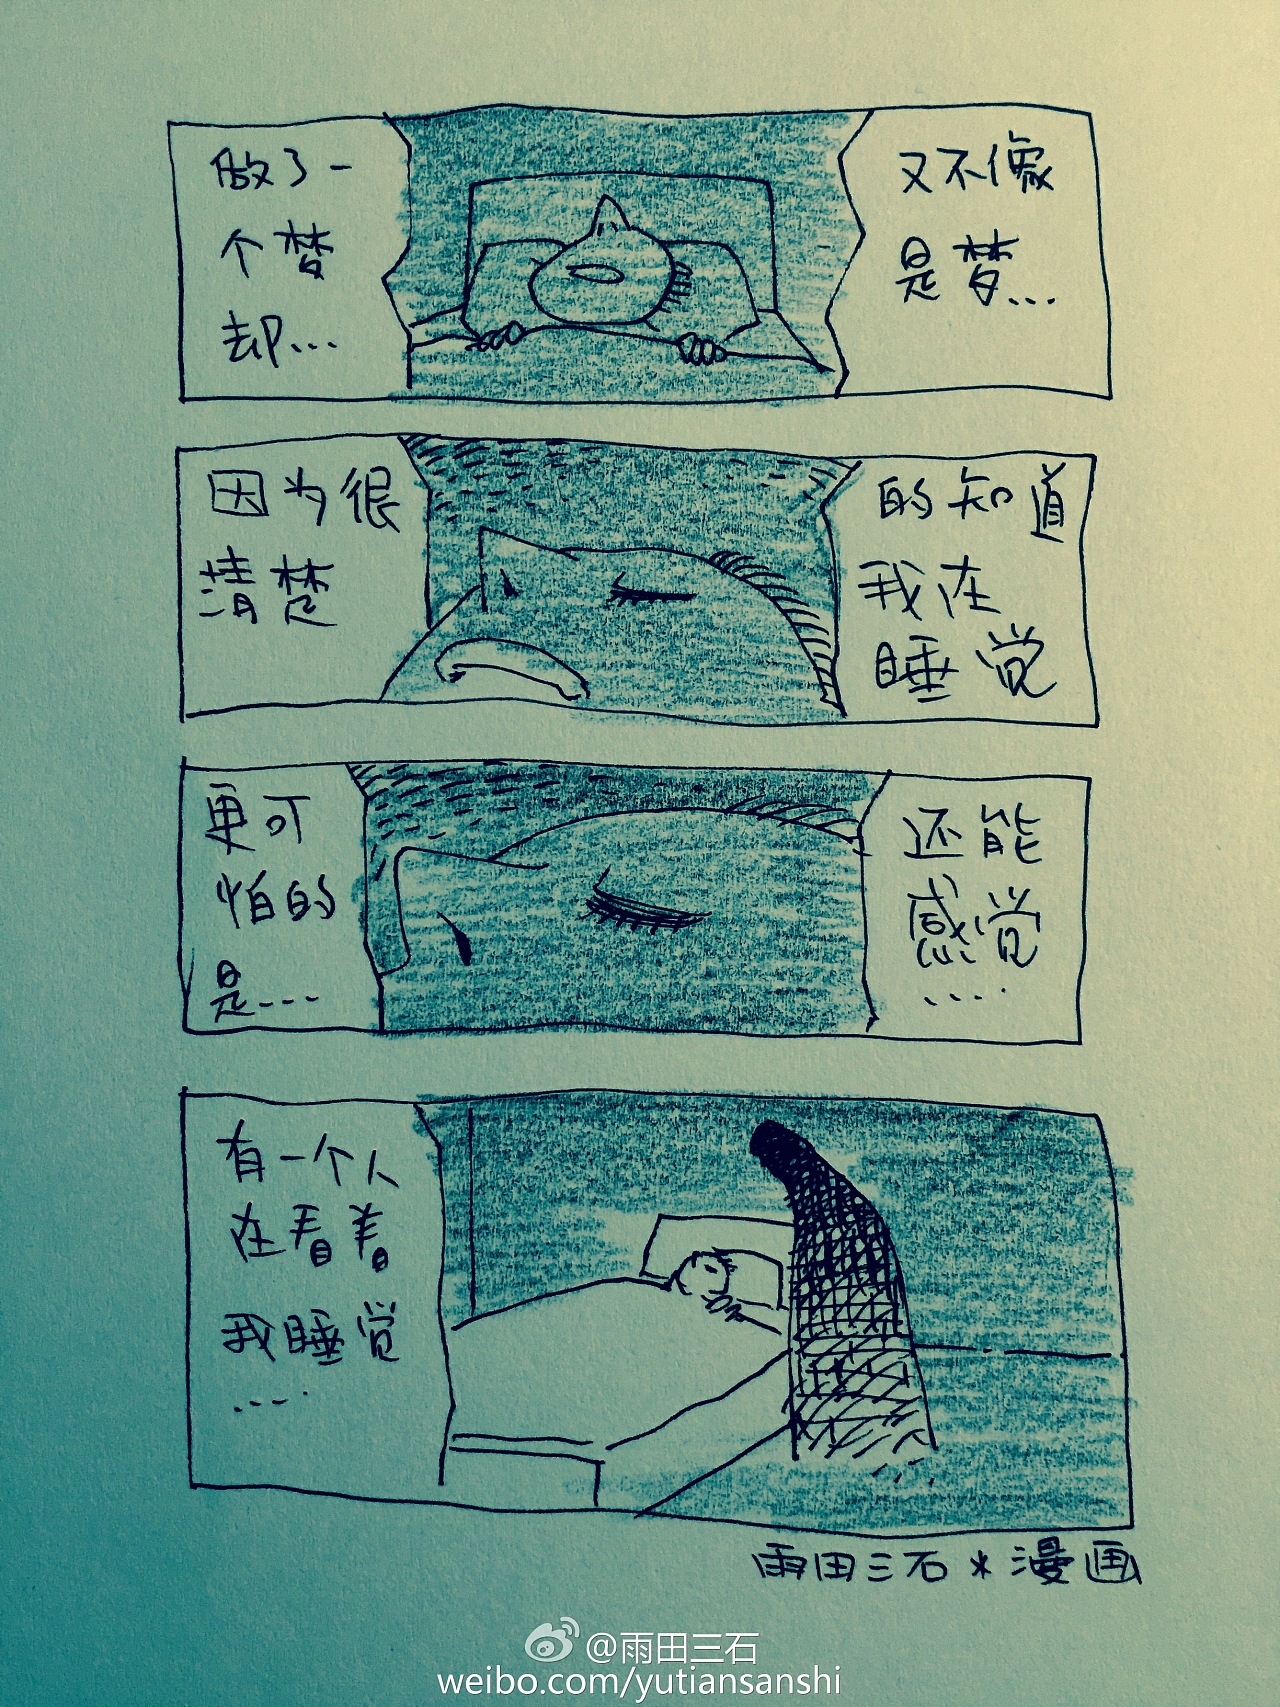 做了一
个梦
却...
又不像
是梦...
因为很
清楚
的知道
我在
睡觉
更可
怕的
是...
还能
感觉
....
有一个人
在看着
我睡觉
....
雨田三石*漫画
@雨田三石
weibo.com/yutiansanshi